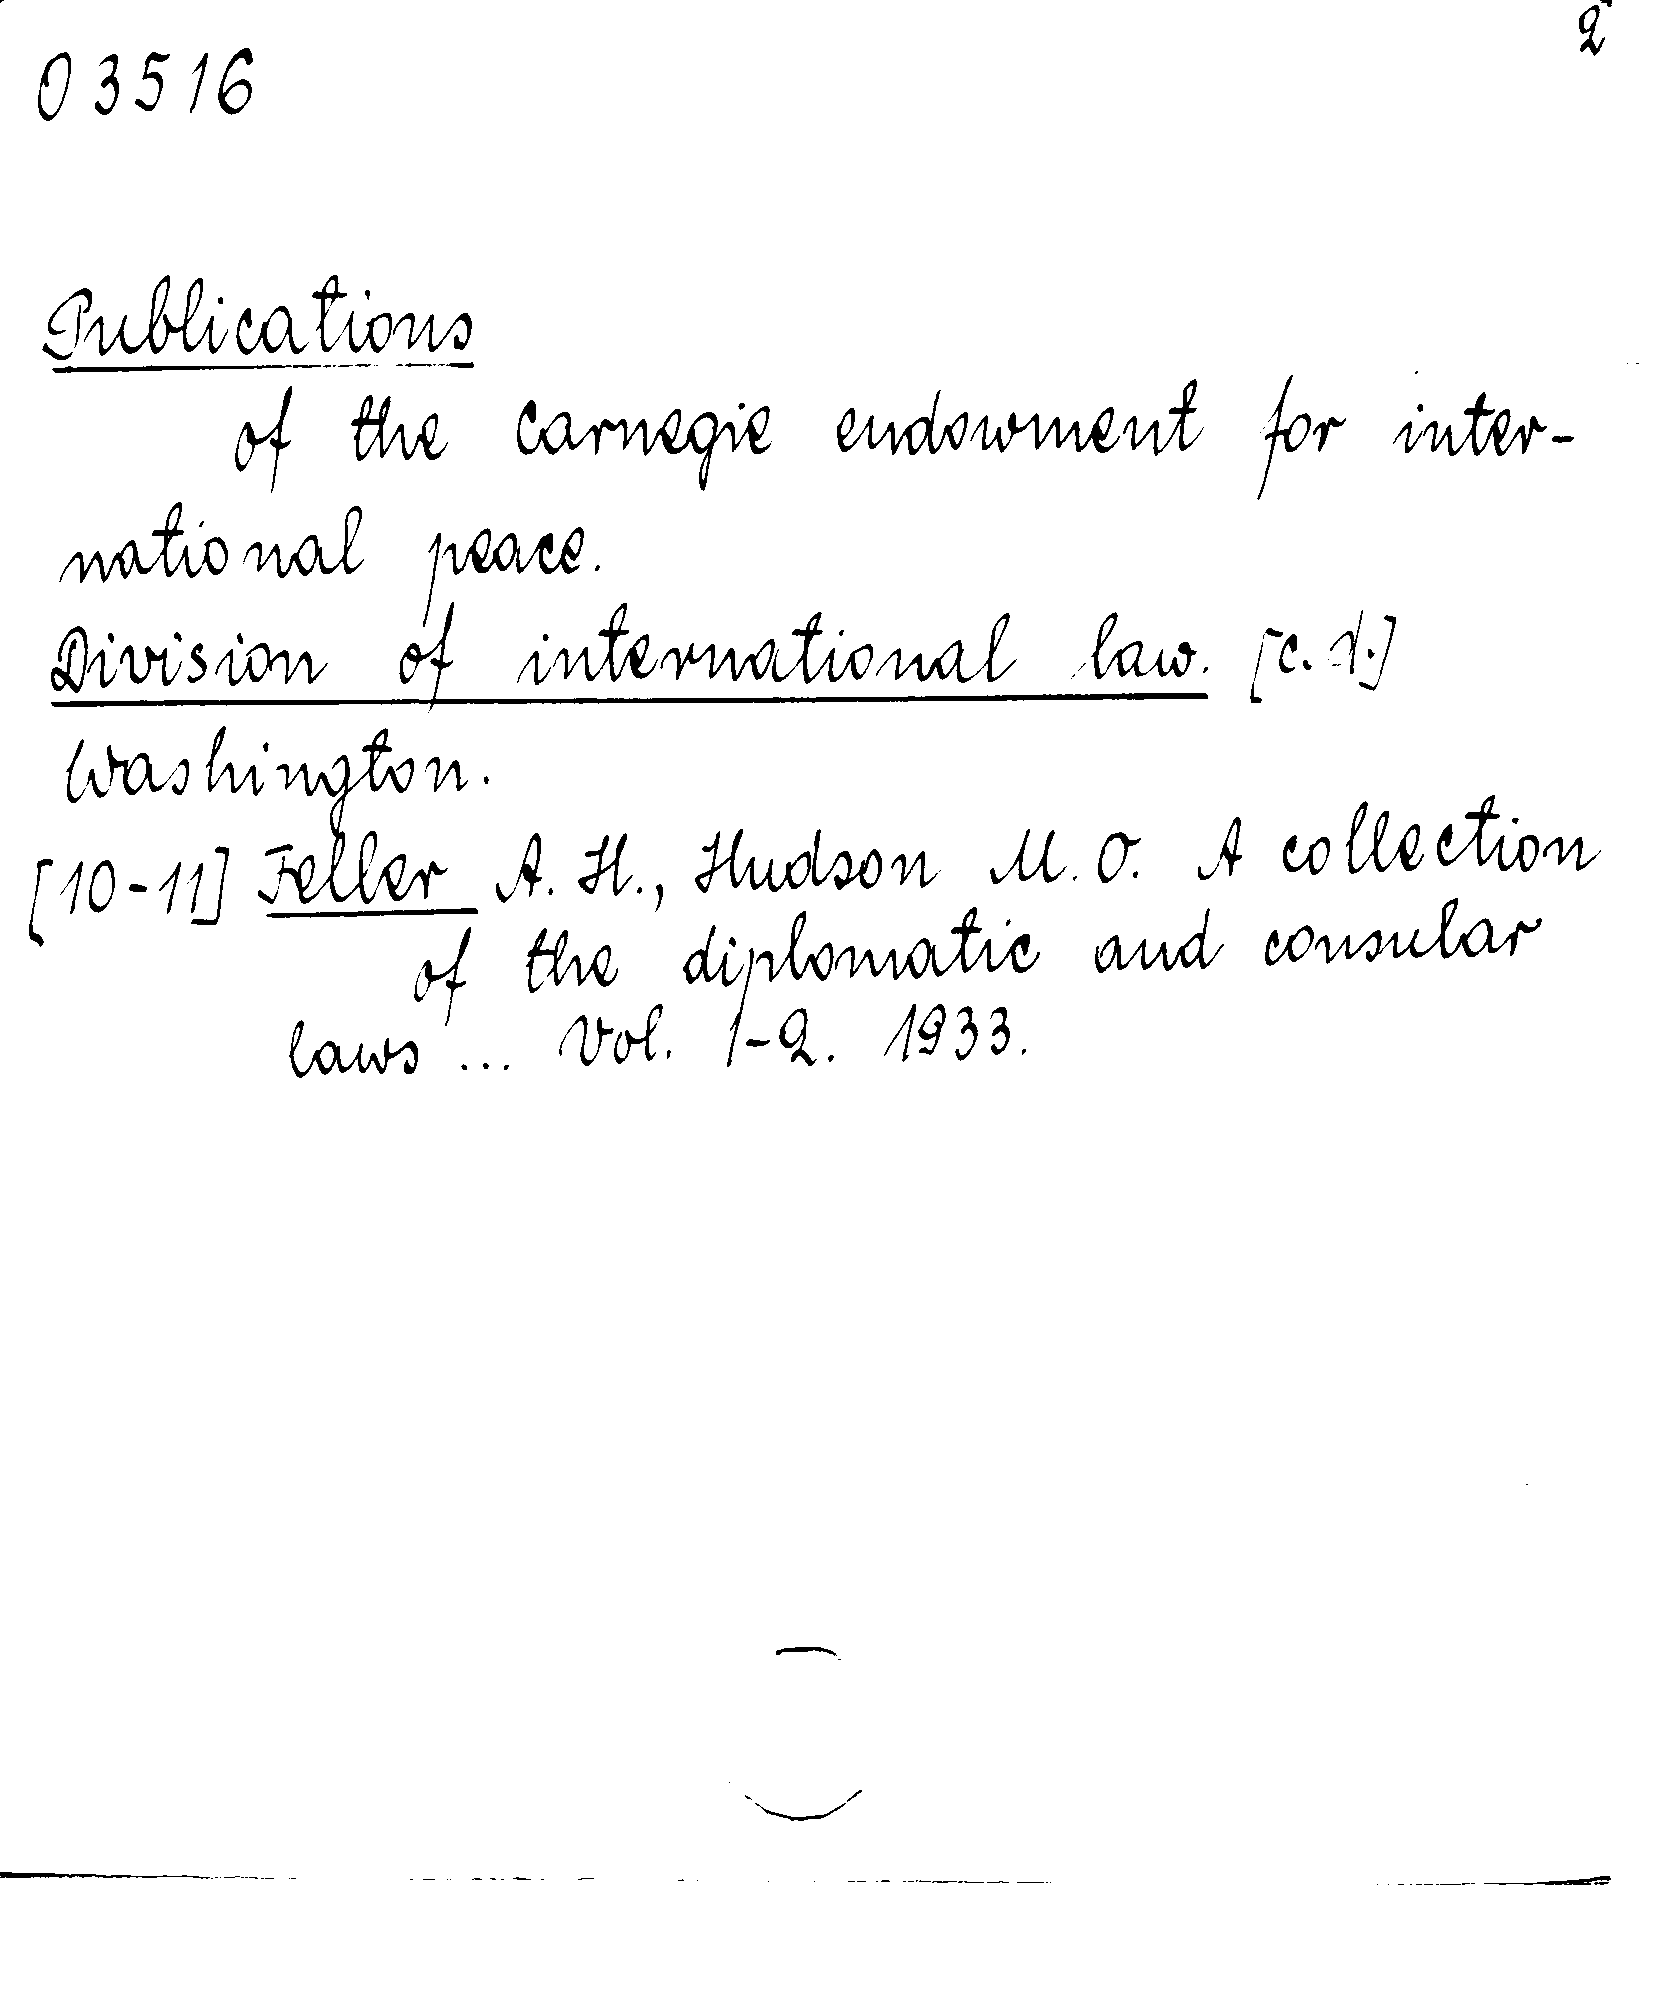 2
03516
Publications
of the Carnegie endowment for inter-
national peace.
Division of international law. [c. d.]
Washington.
[10-11] Feller A. H., Hudson M. O. A collection
of the diplomatic and consular
laws ... Vol. 1-2. 1933.